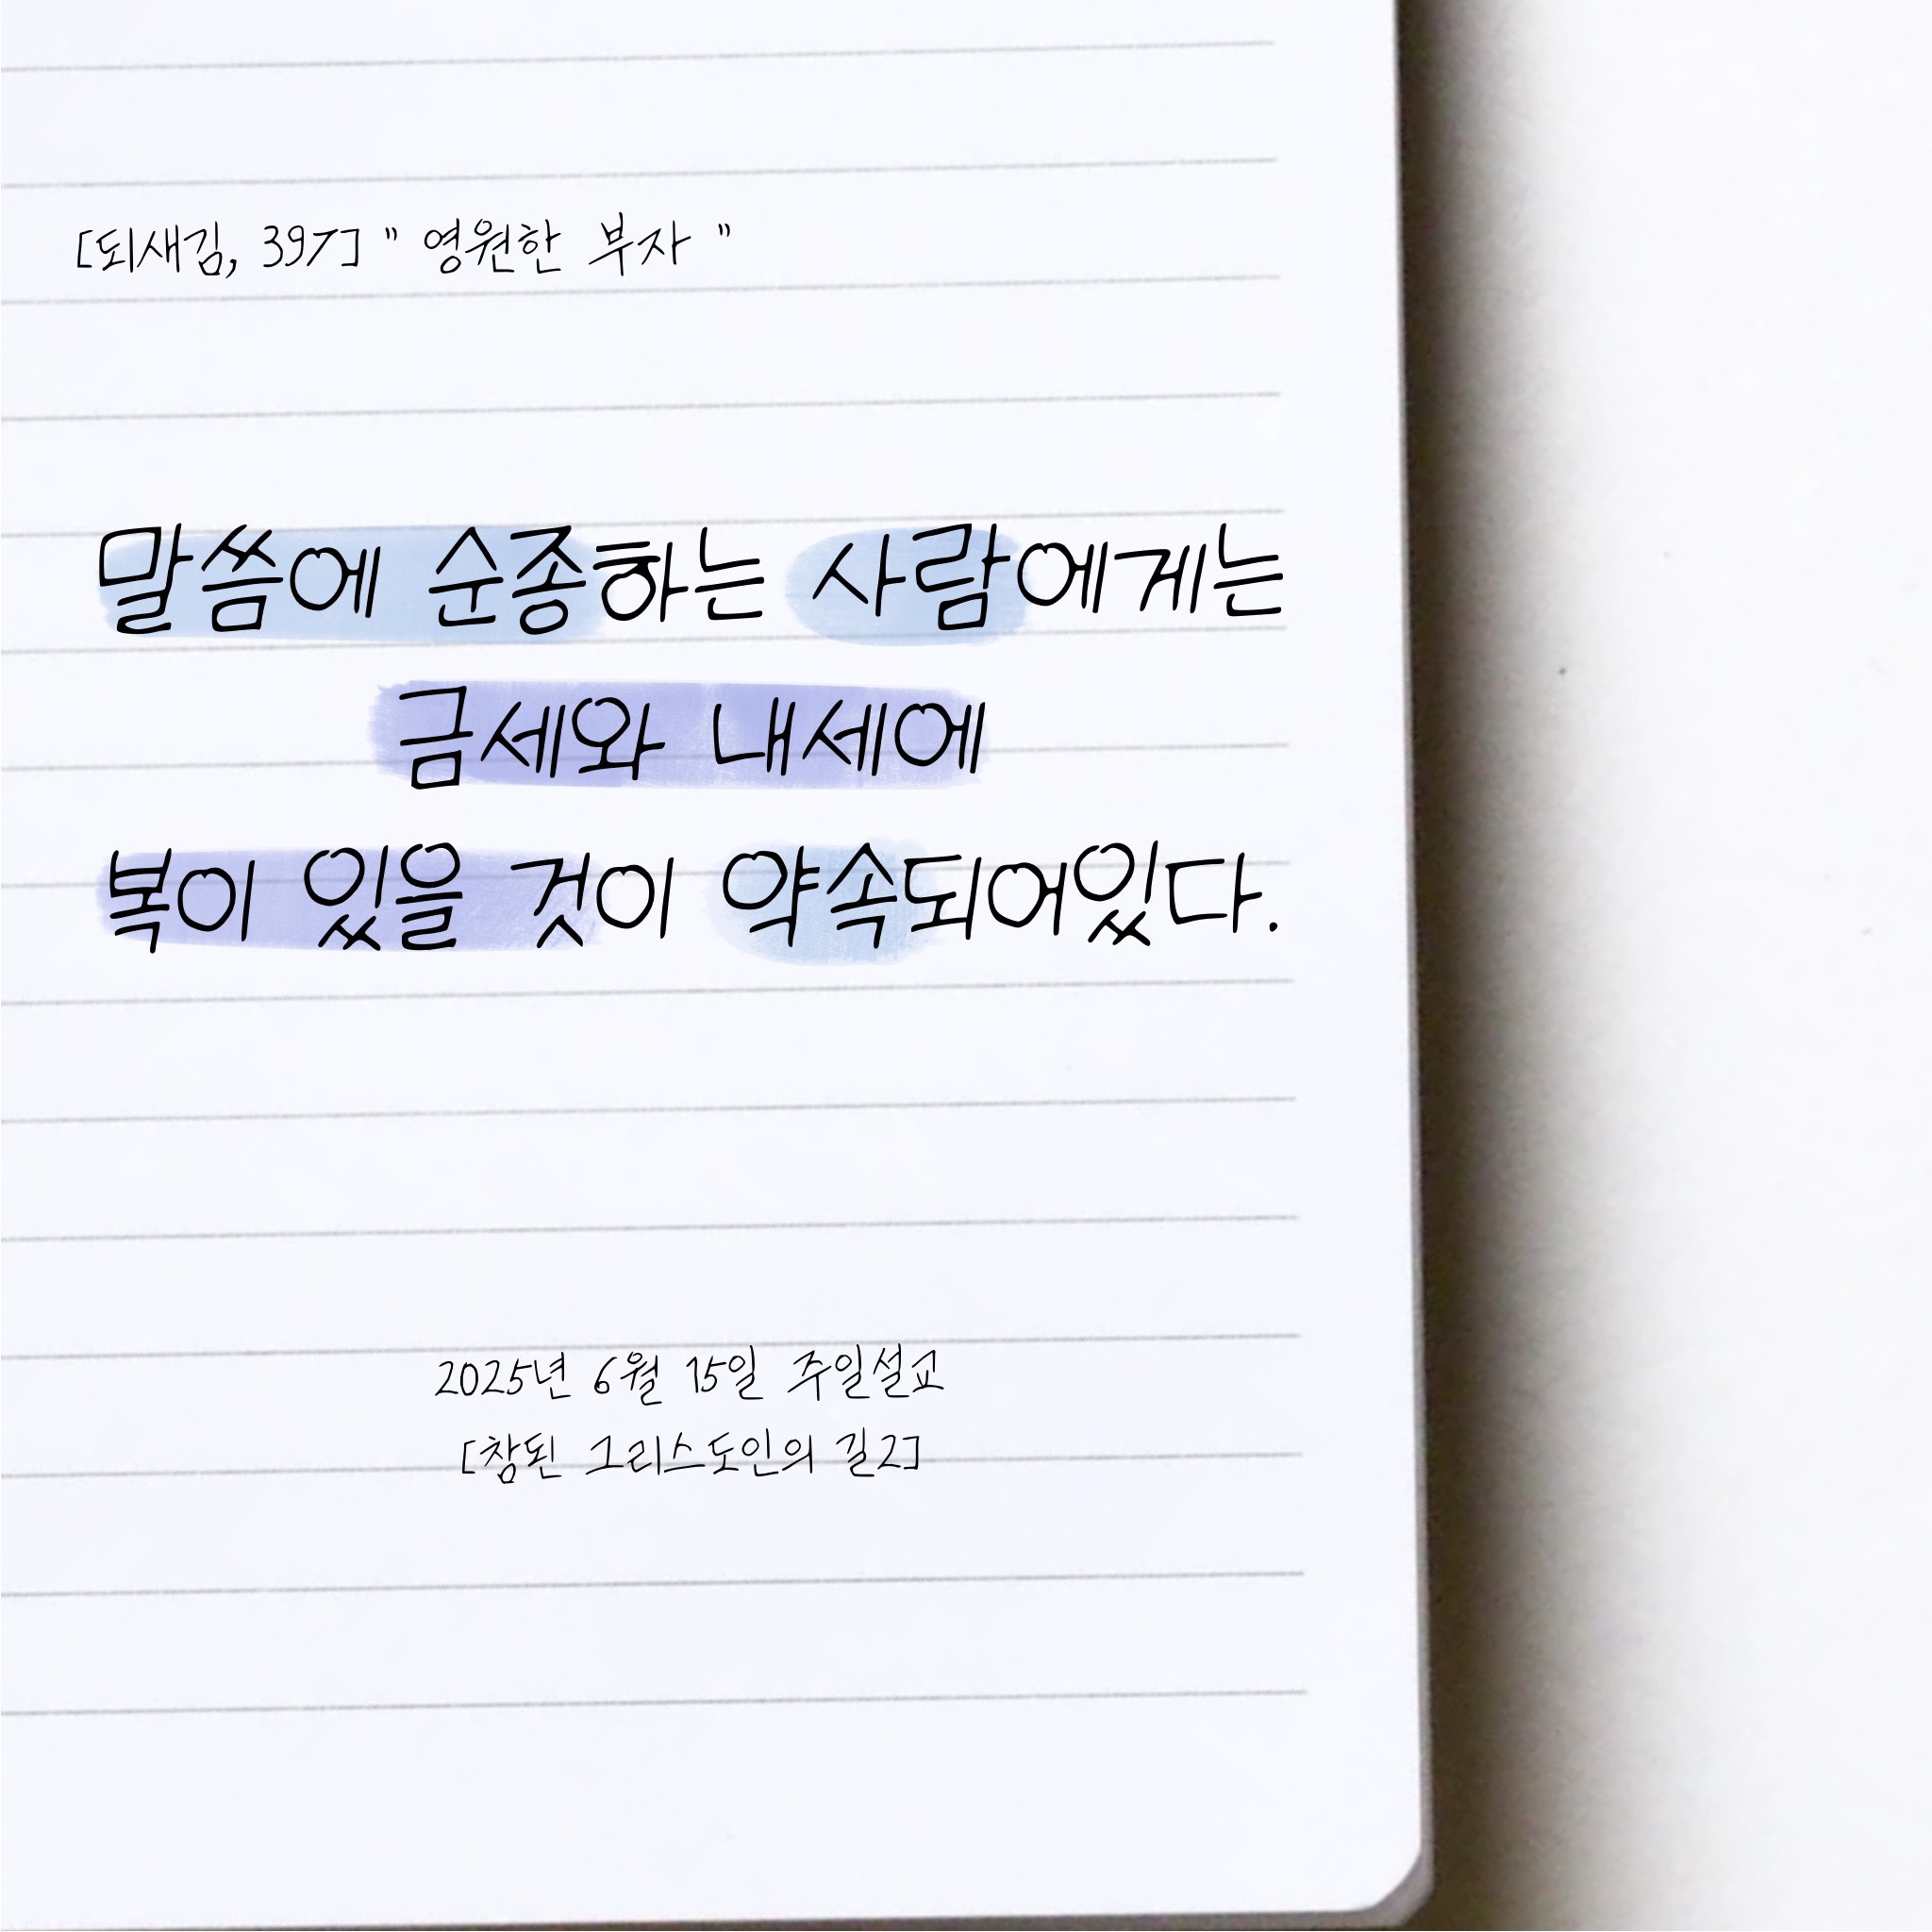 [되새김, 397] " 영원한 부자 "
말씀에 순종하는 사람에게는
금세와 내세에
복이 있을 것이 약속되어있다.
2025년 6월 15일 주일설교
[참된 그리스도인의 길2]